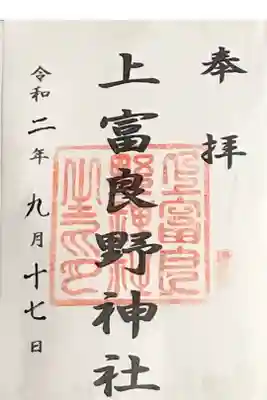 奉拝
上富良野神社
令和二年九月十七日
上富良
野神社
之印